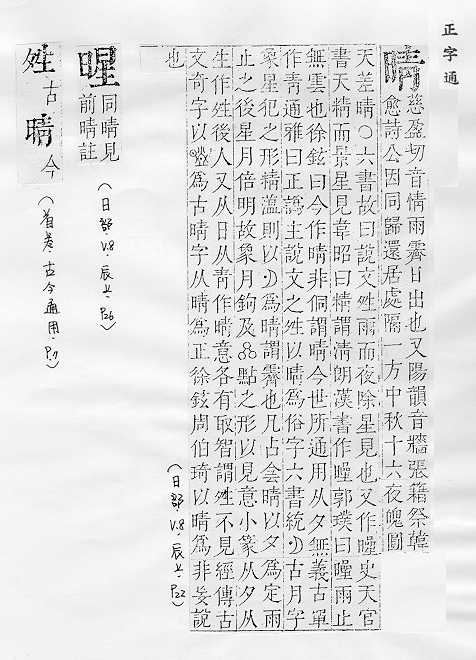 正字通
晴慈盈切音情雨霽日出也又陽韻音牆張籍祭韓
愈詩公因同歸還居處隔一方中秋十六夜魄圓
天差晴○六書故曰說文夝雨而夜除星見也又作暒史天官
書天精而景星見韋昭曰精謂清朗漢書作暒郭璞曰暒雨止
無雲也徐鉉曰今作晴非侗謂晴今世所通用从夕無義古單
作青通雅曰正譌主說文之夝以晴爲俗字六書統古月字
象星犯之形精薀則以爲晴謂霽也凡占会晴以夕爲定雨
止之後星月倍明故象月鉤及點之形以見意小篆从夕从
生作夝後人又从日从青作晴意各有取智謂夝不見經傳古
文奇字以爲古晴字从晴爲正徐鉉周伯琦以晴爲非妄說
也
(日部.V.8.辰上.P22)
暒同晴見
前晴註
(日部.V.8.辰上.P26)
夝古晴今
(首卷.古今通用.P.7)